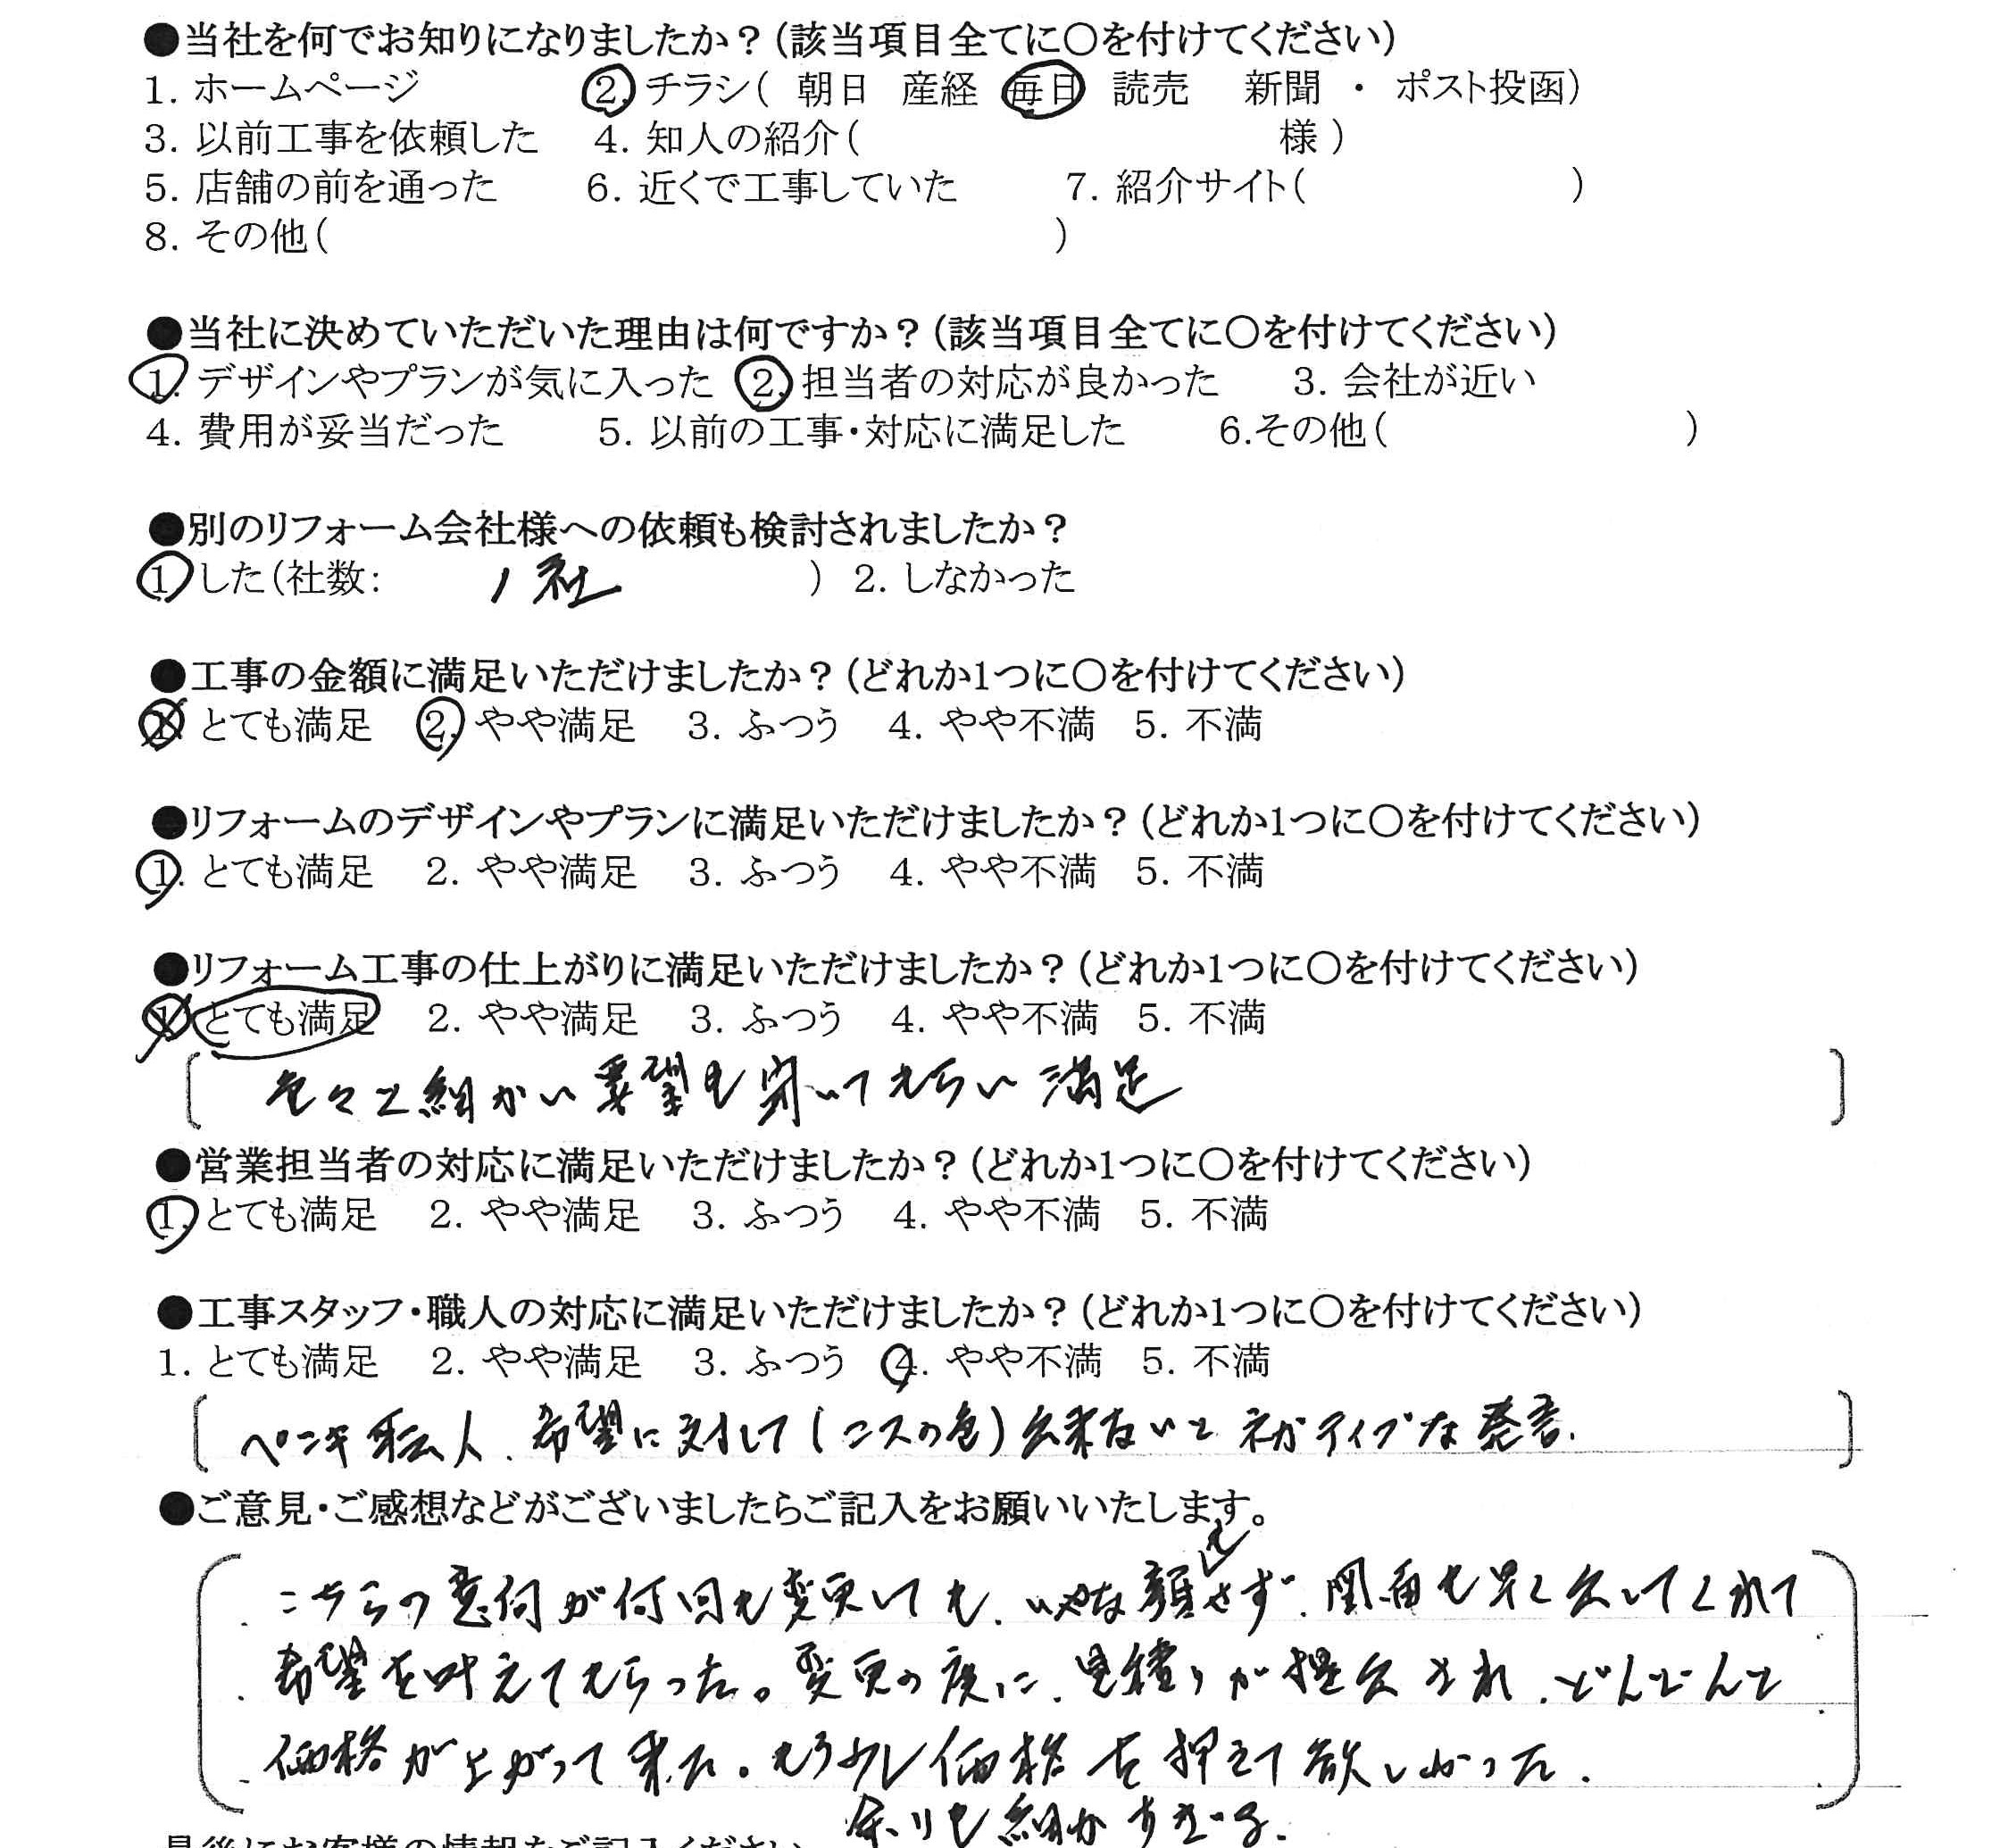 ●当社を何でお知りになりましたか？（該当項目全てに〇を付けてください）
1. ホームページ　2. チラシ（ 朝日 産経 毎日 読売 新聞 ・ ポスト投函）
3. 以前工事を依頼した　4. 知人の紹介（　　様 ）
5. 店舗の前を通った　6. 近くで工事していた　7. 紹介サイト（　　）
8. その他（　　）
●当社に決めていただいた理由は何ですか？（該当項目全てに〇を付けてください）
1. デザインやプランが気に入った　2. 担当者の対応が良かった　3. 会社が近い
4. 費用が妥当だった　5. 以前の工事・対応に満足した　6.その他（　　）
●別のリフォーム会社様への依頼も検討されましたか？
1. した（社数： 1社 ）2. しなかった
●工事の金額に満足いただけましたか？（どれか1つに〇を付けてください）
1. とても満足　2. やや満足　3. ふつう　4. やや不満　5. 不満
●リフォームのデザインやプランに満足いただけましたか？（どれか1つに〇を付けてください）
1. とても満足　2. やや満足　3. ふつう　4. やや不満　5. 不満
●リフォーム工事の仕上がりに満足いただけましたか？（どれか1つに〇を付けてください）
1. とても満足　2. やや満足　3. ふつう　4. やや不満　5. 不満
色々と細かい要望も聞いてもらい満足
●営業担当者の対応に満足いただけましたか？（どれか1つに〇を付けてください）
1. とても満足　2. やや満足　3. ふつう　4. やや不満　5. 不満
●工事スタッフ・職人の対応に満足いただけましたか？（どれか1つに〇を付けてください）
1. とても満足　2. やや満足　3. ふつう　4. やや不満　5. 不満
ペンキ職人、希望に対して（ニスの色）出来ないとネガティブな発言.
●ご意見・ご感想などがございましたらご記入をお願いいたします。
こちらの意向が何回も変更しても、いやな顔もせず、図面も早く出してくれて
希望を叶えてもらった。変更の度に、見積りが提出され、どんどんと
価格が上がって来た。もう少し価格を押えて欲しかった.
余りも細かすぎる.
最後にお客様の情報をご記入ください